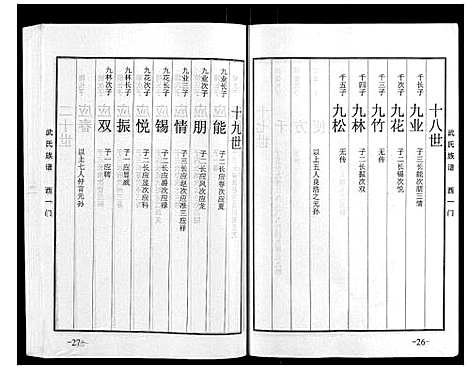 武氏族谱 西一门
十八世
千长子 九业 子三长能次朋三情
千次子 九花 子二长锡次悦
千三子 九竹 无传
千四子 九林 子二长振次双
千五子 九松 无传
以上五人良浩之元孙
-26-
十九世
九业长子 能 子二长应春次应夏
九业次子 朋 子二长应凤次应龙
九业三子 情 子三长应赵次应淮三应禄
九花长子 锡 子二长应爵次应禄
九花次子 悦 子二长应显次应科
九林长子 振 子一应威
九林次子 双 子一应聘
以上七人仲言元孙
武氏族谱 西一门
-27-